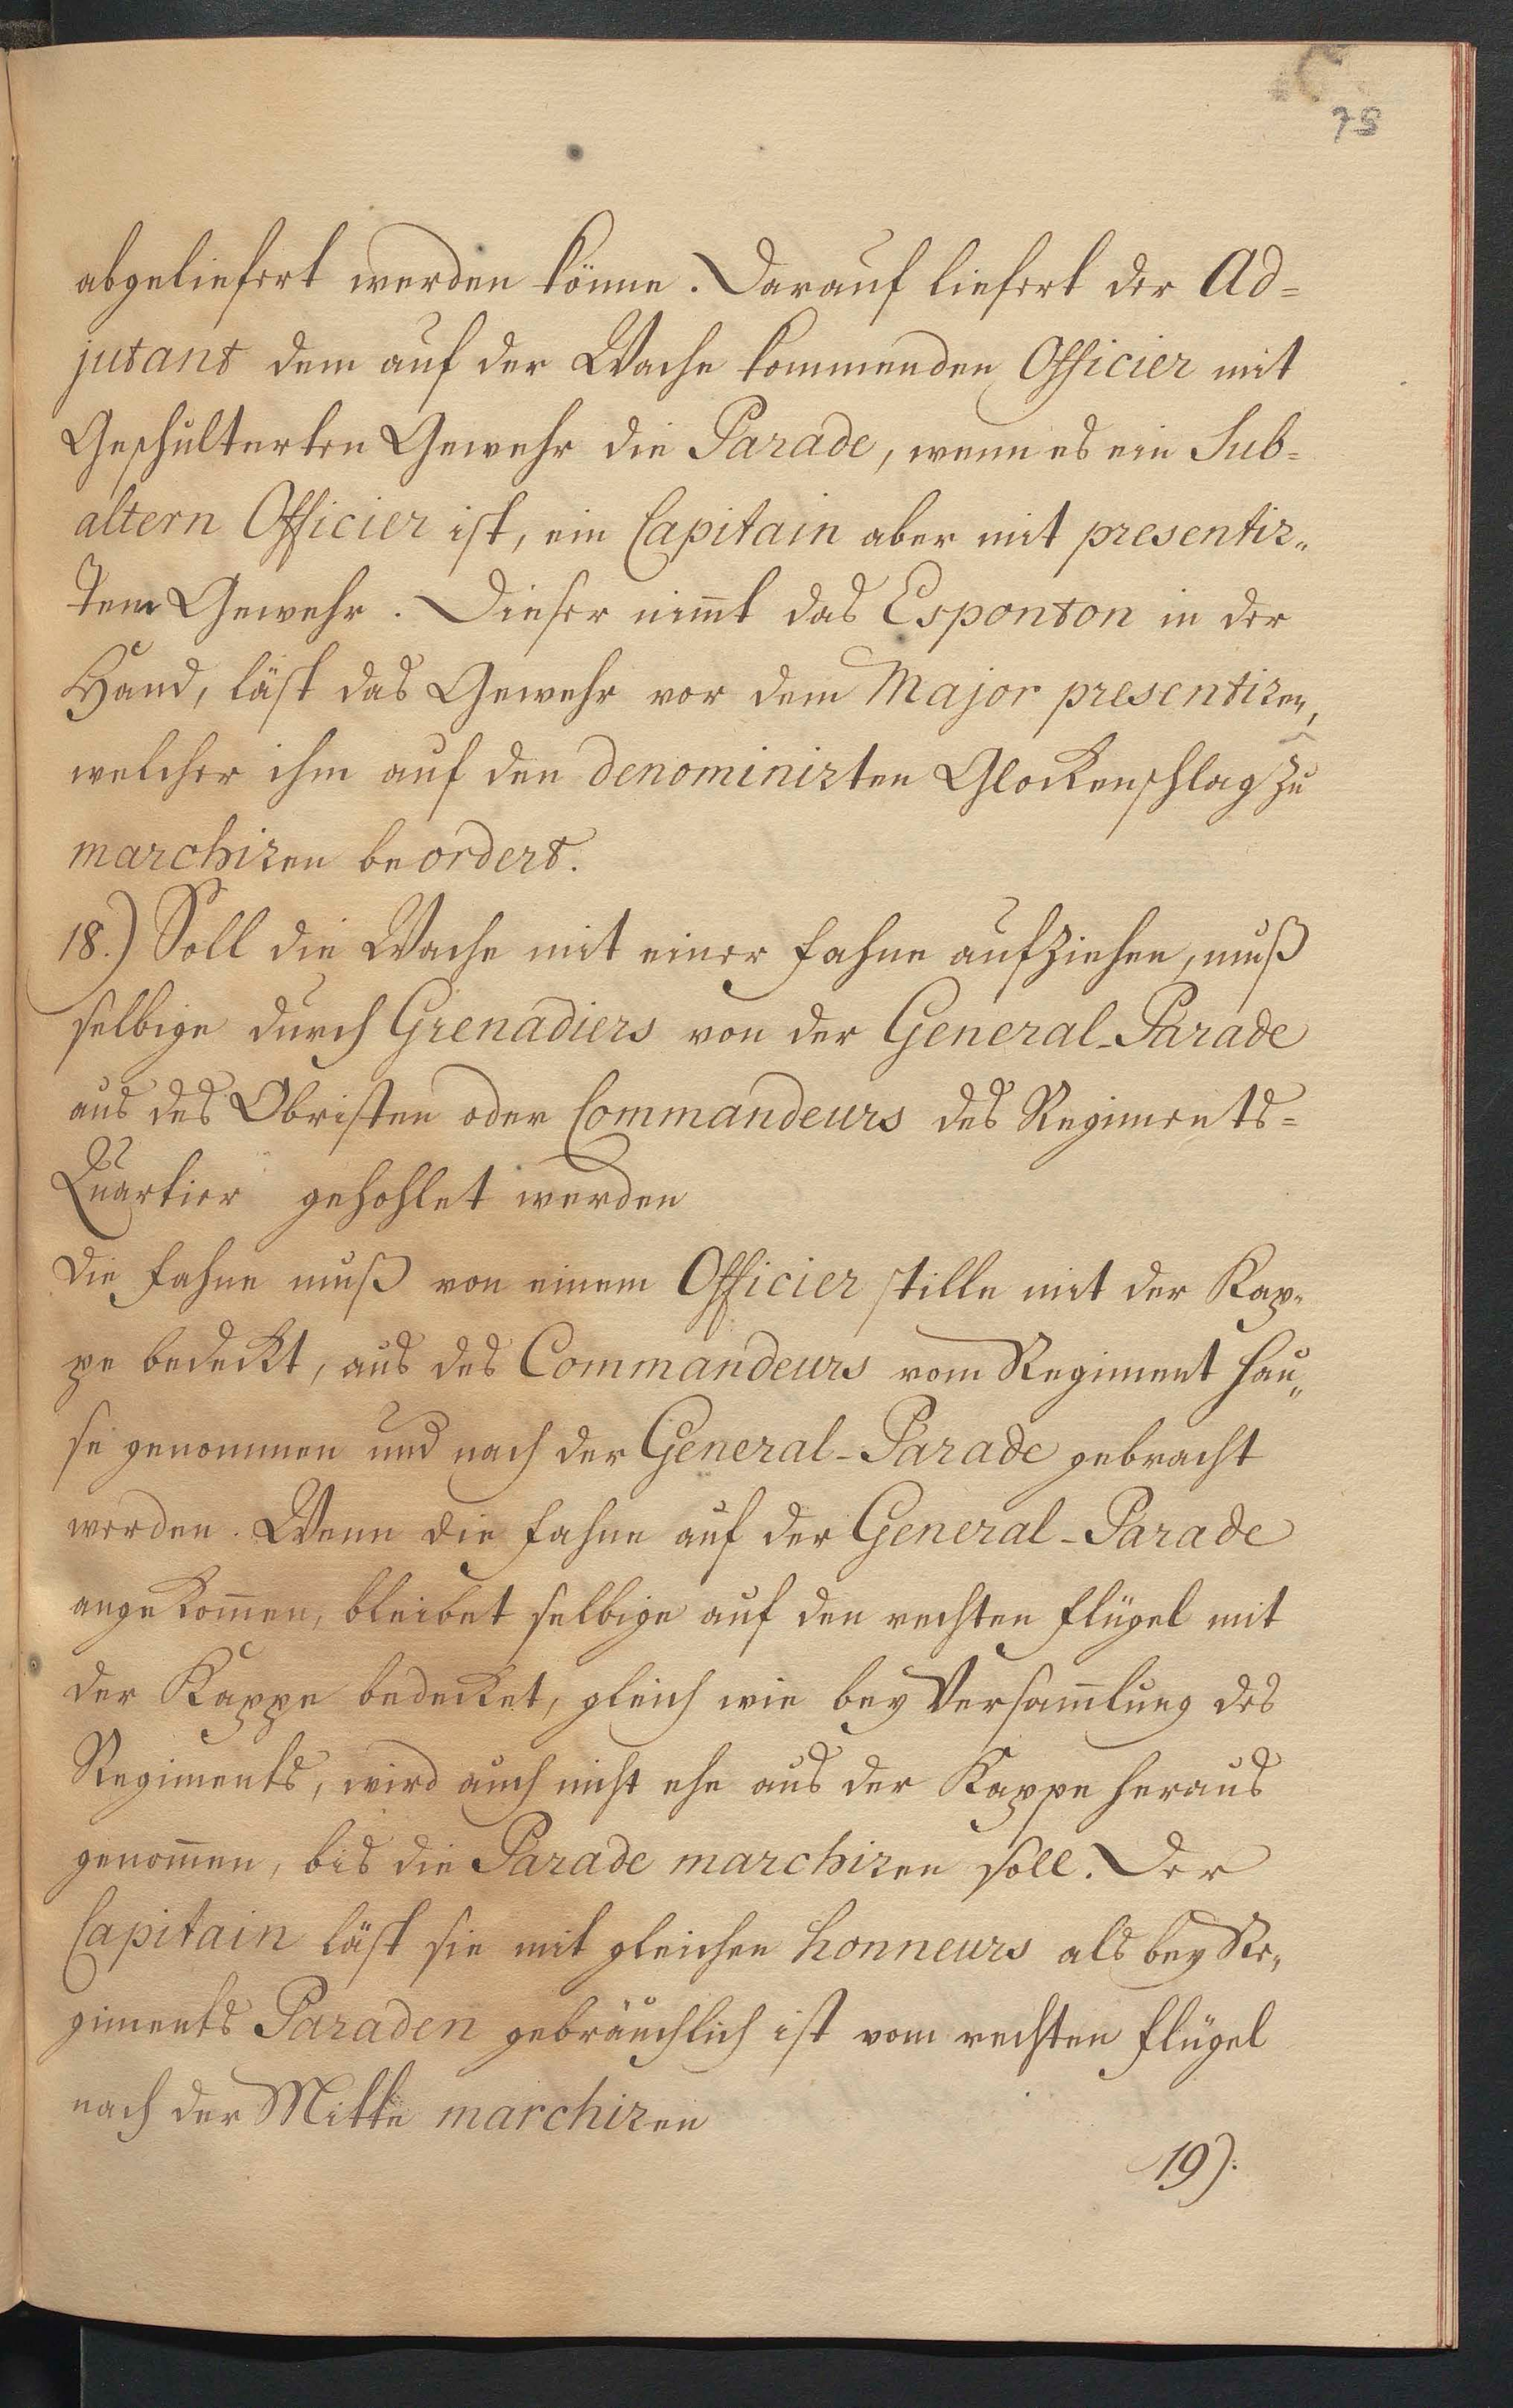 75
abgeliefert werden könne. Darauf liefert der Ad=
jutant dem auf der Wache kommenden Officier mit
Geschulterten Gewehr die Parade, wenn es ein Sub=
altern Officier ist, ein Capitain aber mit presentir„
tem Gewehr. Dieser nim̄t das Esponton in der
Hand, läst das Gewehr vor dem Major presentiren,
welcher ihm auf den denominirten Glockenschlag zu
marchiren beordert.
18.) Soll die Wache mit einer Fahne aufziehen, muß
selbige durch Grenadiers von der General-Parade
aus des Obristen oder Commandeurs des Regiments=
Quartier gehohlet werden
Die Fahne muß von einem Officier stille mit der Kap„
pe bedeckt, aus des Commandeurs vom Regiment Hau„
se genommen und nach der General-Parade gebracht
werden. Wenn die Fahne auf der General-Parade
angekom̄en, bleibet selbige auf den rechten Flügel mit
der Kappe bedecket, gleich wie bey Versam̄lung des
Regiments, wird auch nicht ehe aus der Kappe heraus
genom̄en, bis die Parade marchiren soll. Der
Capitain läst sie mit gleichen honneurs als bey Re„
giments Paraden gebräuchlich ist vom rechten Flügel
nach der Mitte marchiren
19).